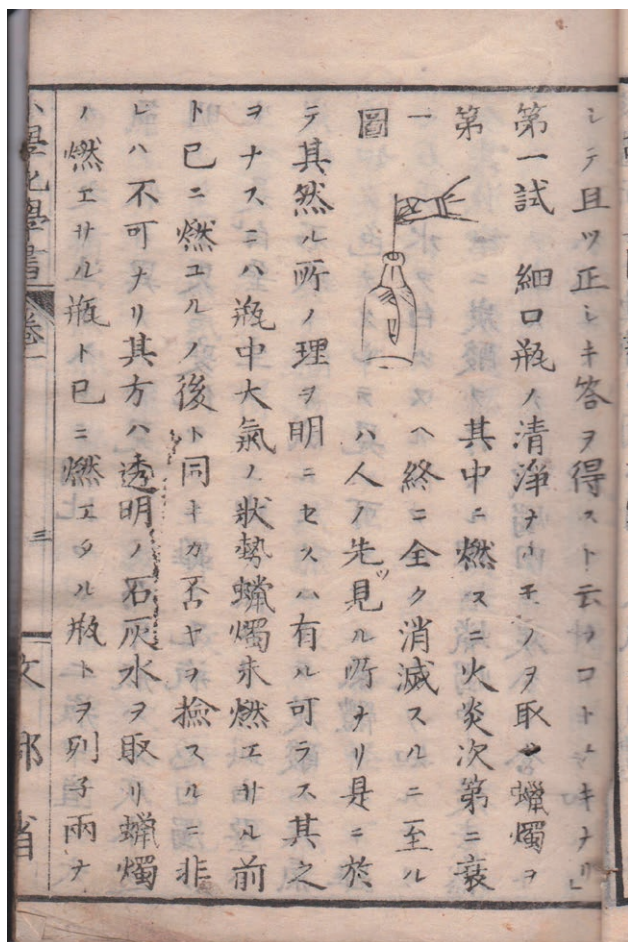 シテ且ツ正シキ答ヲ得スト云フコトナキナリ」
第一試 細口瓶ノ清浄ナルモノヲ取リ蠟燭ヲ
其中ニ燃スニ火炎次第ニ衰
ヘ終ニ全ク消滅スルニ至ル
ハ人ノ先ツ見ル所ナリ是ニ於
第一圖
テ其然ル所ノ理ヲ明ニセスハ有ル可ラス其之
ヲナスニハ瓶中大氣ノ狀勢蠟燭未燃エサル前
ト已ニ燃ユルノ後ト同キカ否ヤヲ撿スルニ非
レハ不可ナリ其方ハ透明ノ石灰水ヲ取リ蠟燭
ノ燃エサル瓶ト已ニ燃エタル瓶トヲ列子兩ナ
小學化學書 卷一 三 文部省